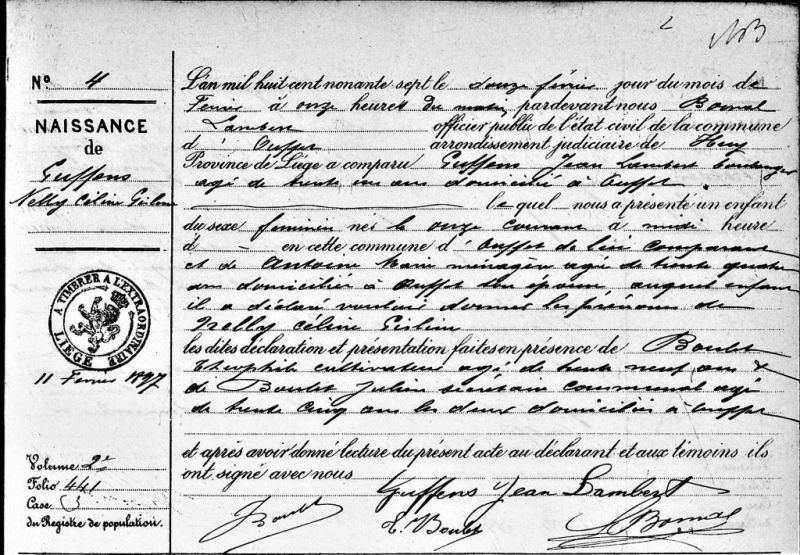 2
N° 4
NAISSANCE
de
Guffens
Nelly Céline Gislène
A TIMBRER A L'EXTRAORDINAIRE
LIÈGE
11 Fevrier 1897
Volume 2e
Folio 441
Case
du Registre de population.
L'an mil huit cent nonante sept le douze février jour du mois de
Fevrier à onze heures du matin, pardevant nous Bomal
Lambert officier public de l'état civil de la commune
d' Ouffet arrondissement judiciaire de Huy
Province de Liége a comparu Guffens Jean Lambert boulanger
agé de trente un ans domicilié à Ouffet
le quel nous a présenté un enfant
du sexe feminin né le onze courant à midi heure
d en cette commune d' Ouffet de lui comparant
et de Antoine Marie ménagère agée de trente quatre
ans domiciliée à Ouffet son épouse auquel enfant
il a déclaré vouloir donner les prénoms de
Nelly Céline Gislène
les dites déclaration et présentation faites en présence de Boulet
Théophile cultivateur agé de trente neuf ans &
de Boulet Julien secrétaire communal agé
de trente cinq ans les deux domiciliés à Ouffet
et après avoir donné lecture du présent acte au déclarant et aux témoins ils
ont signé avec nous
Guffens Jean Lambert
J Boulet
T. Boulet
L Bomal